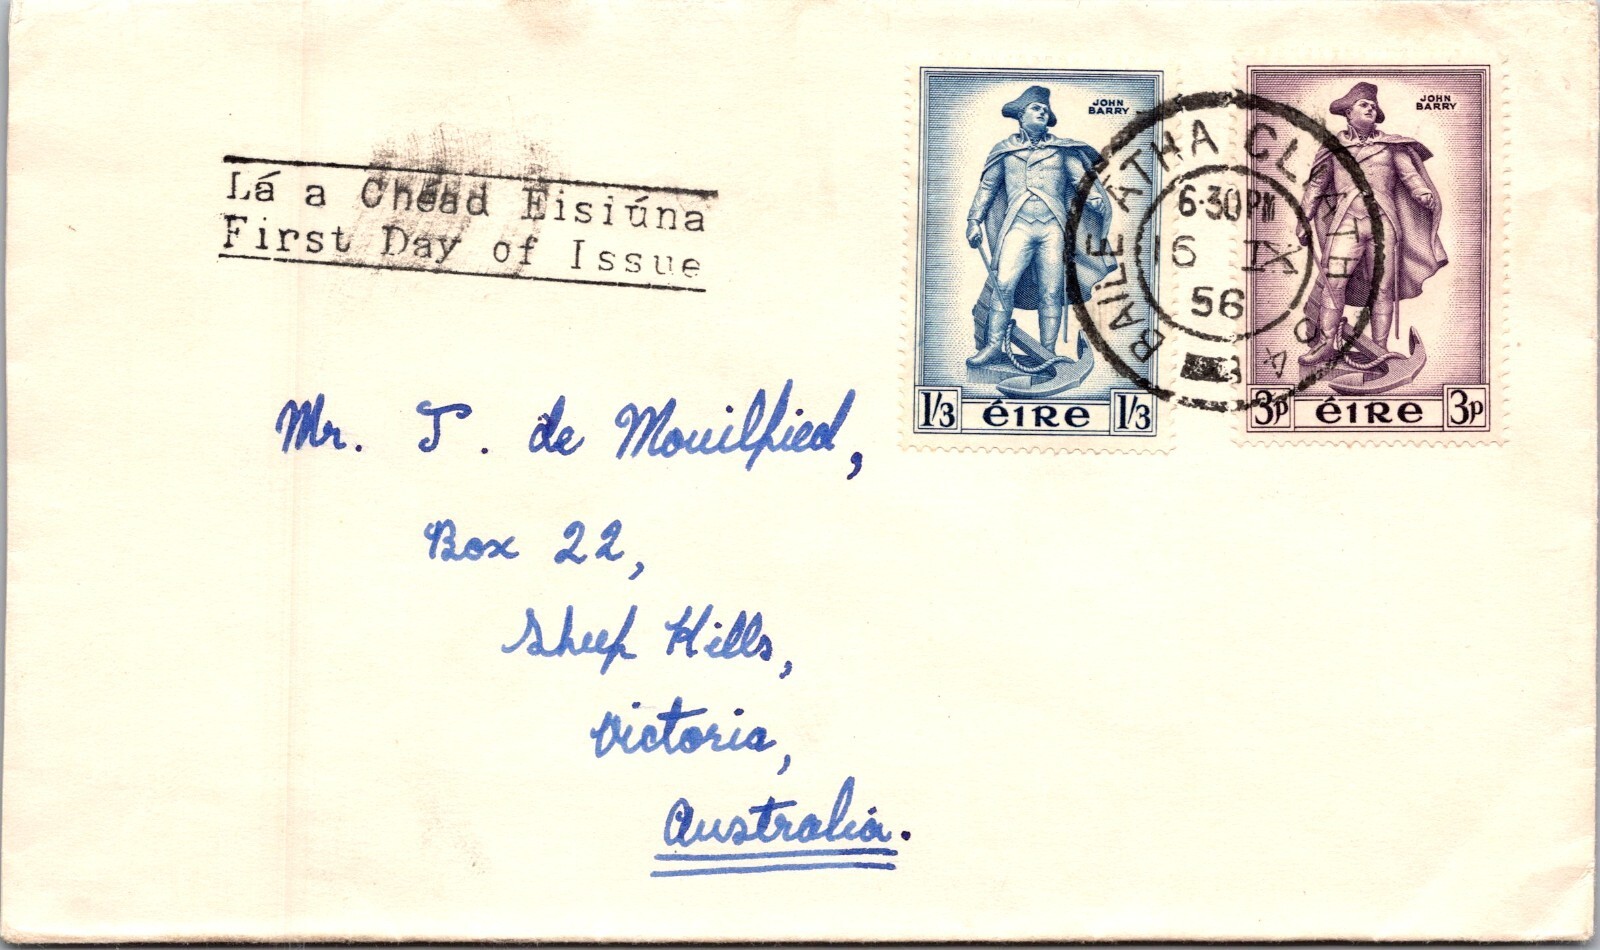 Lá a Chéad Eisiúna
First Day of Issue
JOHN
BARRY
1/3 éiRe 1/3
JOHN
BARRY
3p éiRe 3p
BAiLE ÁTHA CLIATH
6·30PM
16 IX
56
Mr. J. de Mouilpied,
Box 22,
Sheep Hills,
Victoria,
Australia.